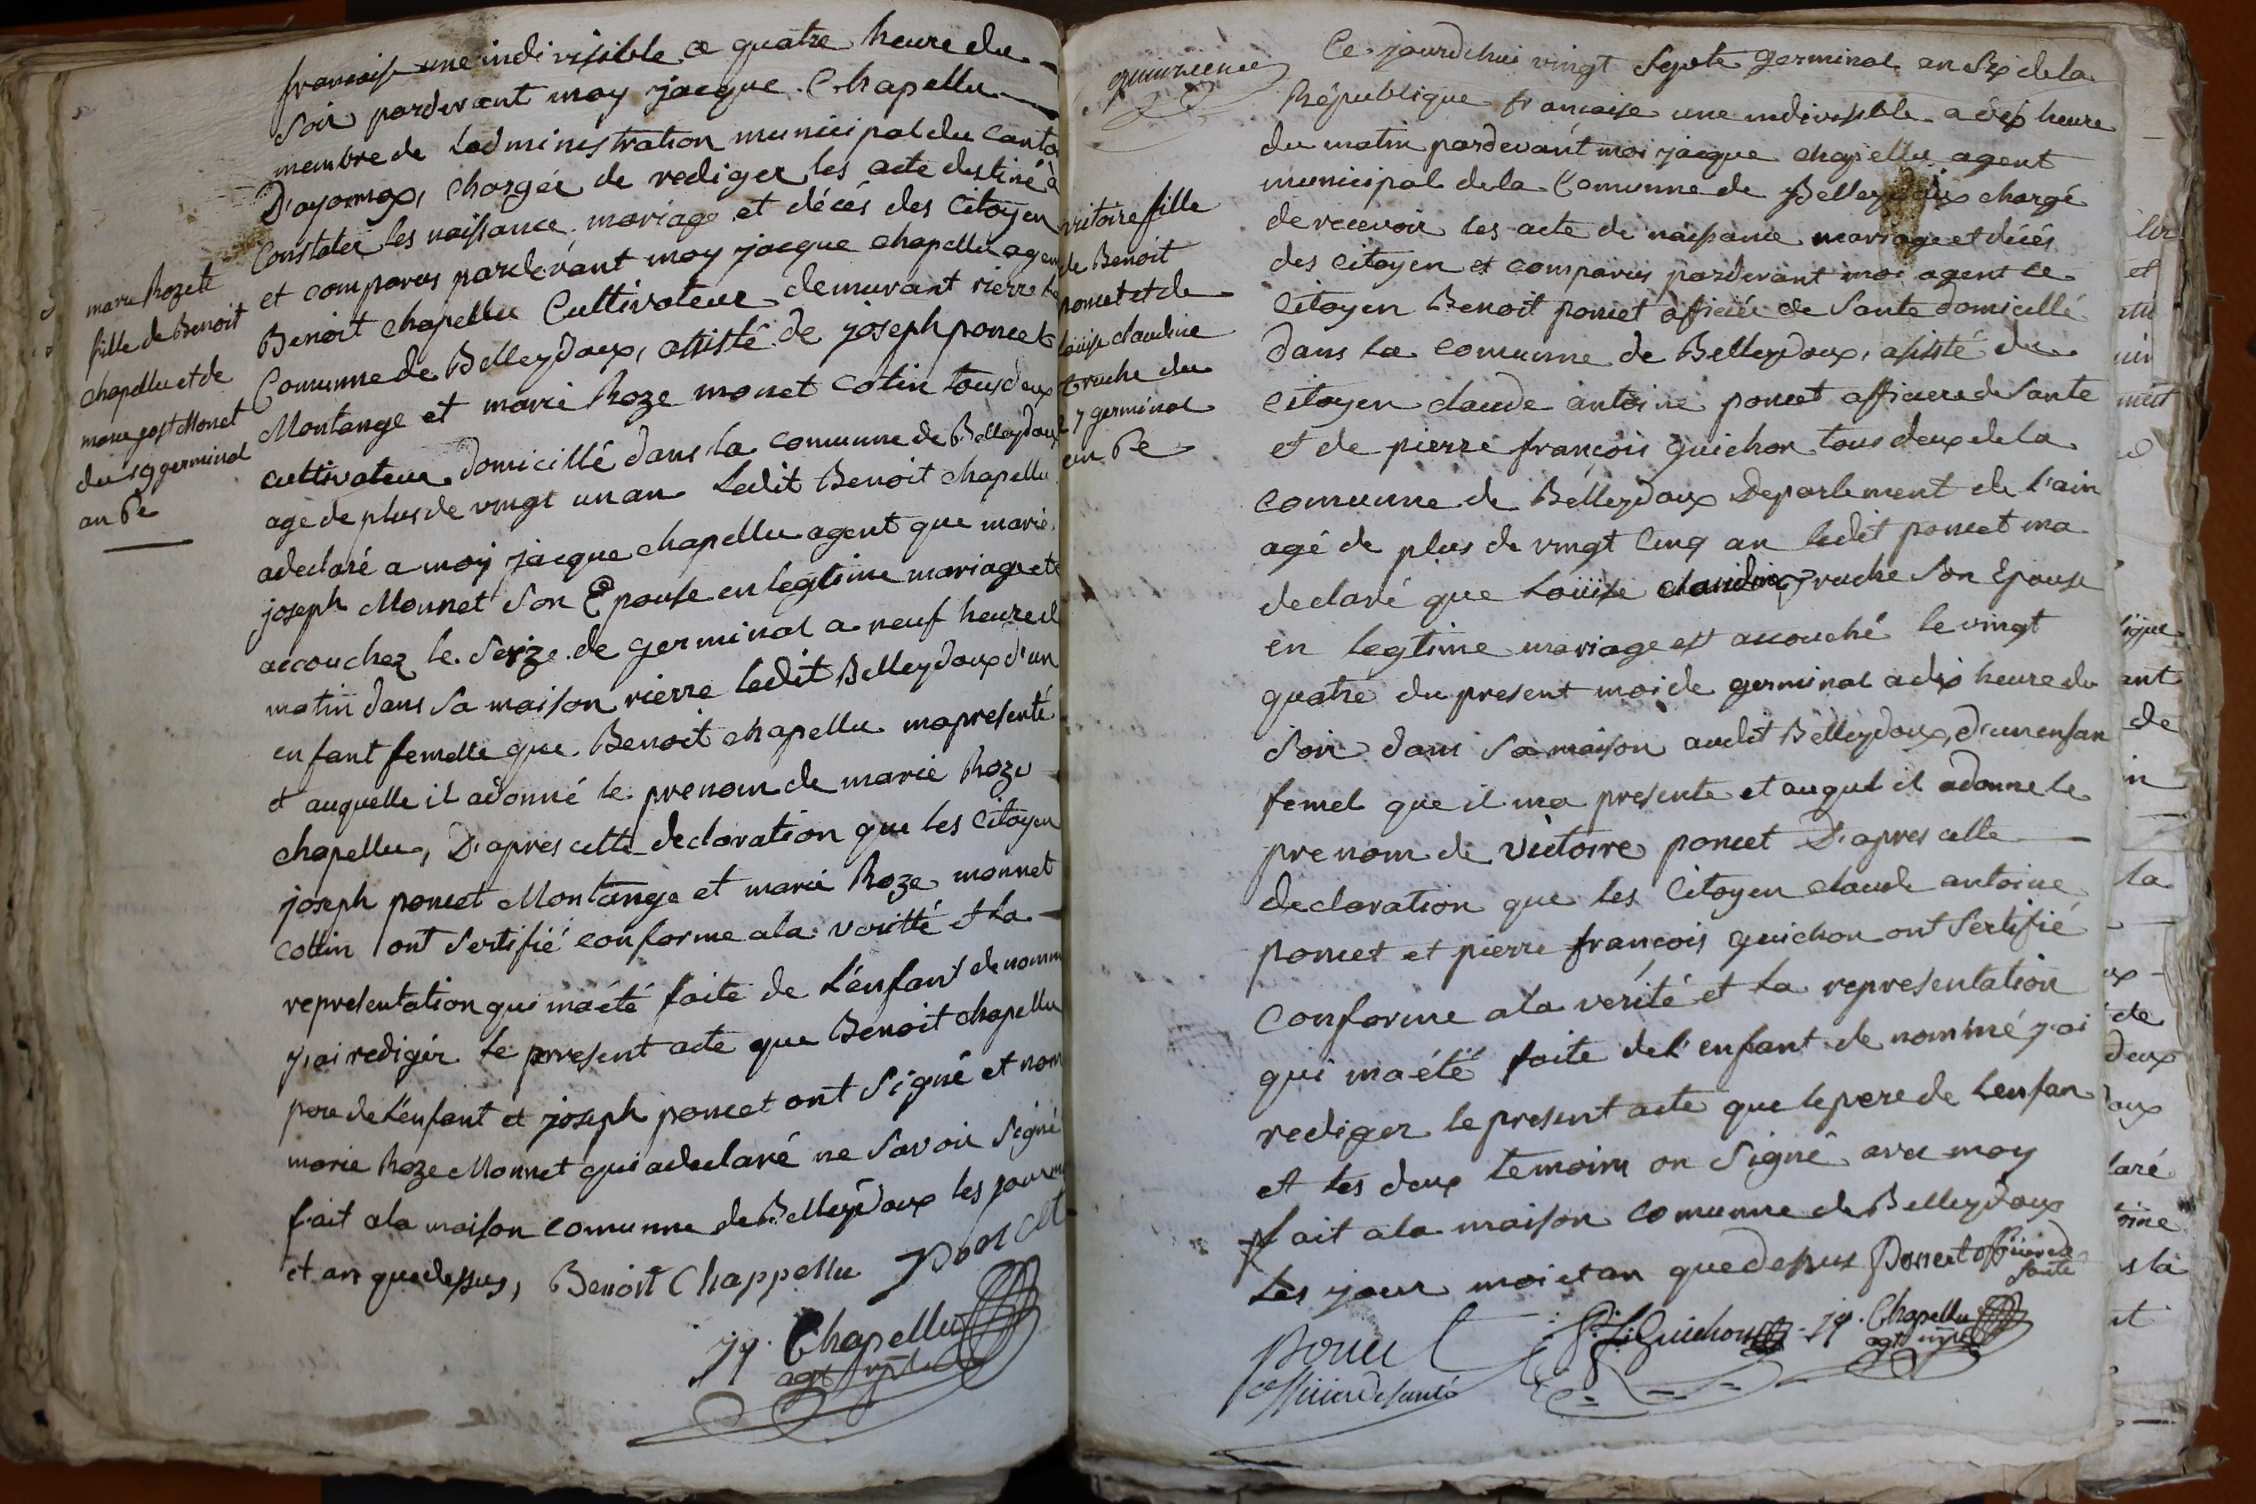 francaise une indivisible a quatre heure du
soir pardevant moy jacque Chapellu
membre de ladministration municipal du canto
D'oyomax, chargée de rediger les acte destiné a
Constater les naissance mariage et décés des Citoyen
et comparus pardevant moy jacque chapellu agen
Benoit chapellu Cultivateur demurant rierre la
Comunne de Belleydoux, assisté de joseph poncet
Montange et marie Roze monet cotin tous deux
cultivateur domicillé dans la comunne de Belleydoux
age de plus de vingt un an Ledit Benoit chapellu
adeclaré a moy jacque chapellu agent que marie
joseph Monnet son Epouse en legtime mariage et
accouchez le seize de germinal a neuf heure d
matin dans sa maison rierre ledit Belleydoux d'un
enfant femelle que Benoit chapellu mapresenté
et auquelle il adonné le prenom de marie Roze
chapellu, D'apres cette declaration que les Citoyen
joseph poncet Montange et marie Roze monnet
cottin ont sertifié conforme ala veritté et la
representation qui ma été faite de L'enfant denomm
j'ai redigér le present acte que Benoit chapellu
pere de L'enfant et joseph poncet ont signé et non
marie Roze Monnet qui adeclaré ne savoir signé
fait ala maison comunne de Belleydoux les jour m
et an quedessus, Benoit Chappellu poncet
jq. Chapellu
agt mpl
marie Rozete
fille de Benoit
chapellu et de
marie jost Monet
du 19 germinal
an 6e
naissance
victoire fille
de Benoit
poncet et de
Louise claudine
truche du
27 germinal
an 6e
Ce jourdhui vingt septe germinal an six de la
République francaise une indivisible a dix heure
du matin pardevant moi jacque chapellu agent
municipal de la Comunne de Belleydoux chargé
de recevoir les acte de naissance mariage et décés
des citoyen et comparus pardevant moi agent le
Citoyen Benoit poncet officiée de Sante domicillé
dans la comunne de Belleydoux, assisté du
citoyen claude antoine poncet officiere de Sante
et de pierre françois guichon tous deux de la
comunne de Belleydoux Departement de l'ain
agé de plus de vingt cinq an ledit poncet ma
declaré que Louise claudine truche son Epouse
en legtime mariage est accouché le vingt
quatre du present moi de germinal a dix heure du
soir dans sa maison audit Belleydoux, d'un enfan
femel que il ma presente et auquel il adonne le
prenom de victoire poncet D'apres cette
declaration que les Citoyen claude antoine
poncet et pierre françois guichon ont sertifié
conforme ala verité et la representation
qui ma été faite de l'enfant de nommé j'ai
rediger le present acte que le pere de Lenfan
et les deux temoins on signé avec moy
fait ala maison comunne de Belleydoux
les jour moi et an quedessus Poncet officier de
sante
poncet
officier de santé
P. f. Guichon
jq. Chapellu
agt mpl